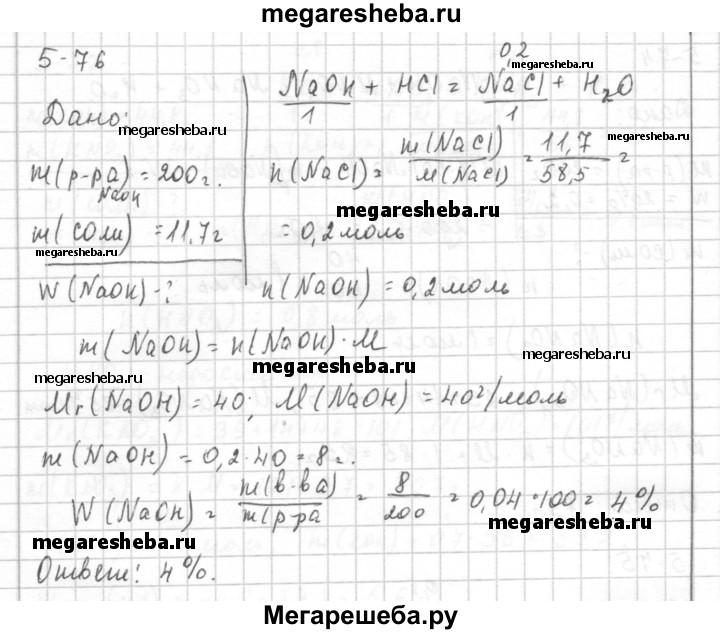 megaresheba.ru
5-76
0,2
megaresheba.ru
NaOH + HCl = NaCl + H₂O
1 1
Дано:
megaresheba.ru
m(р-ра) = 200 г.
NaOH
n(NaCl) = m(NaCl) / M(NaCl) = 11,7 / 58,5 =
megaresheba.ru
megaresheba.ru
m(соли) = 11,7 г
= 0,2 моль
megaresheba.ru
W(NaOH) - ?
n(NaOH) = 0,2 моль
m(NaOH) = n(NaOH) · M
megaresheba.ru
megaresheba.ru
megaresheba.ru
Mr(NaOH) = 40; M(NaOH) = 40 г/моль
m(NaOH) = 0,2 · 40 = 8 г.
W(NaOH) = m(в-ва) / m(р-ра = 8 / 200 = 0,04 · 100 = 4%
megaresheba.ru
megaresheba.ru
megaresheba.ru
Ответ: 4%.
Мегарешеба.ру